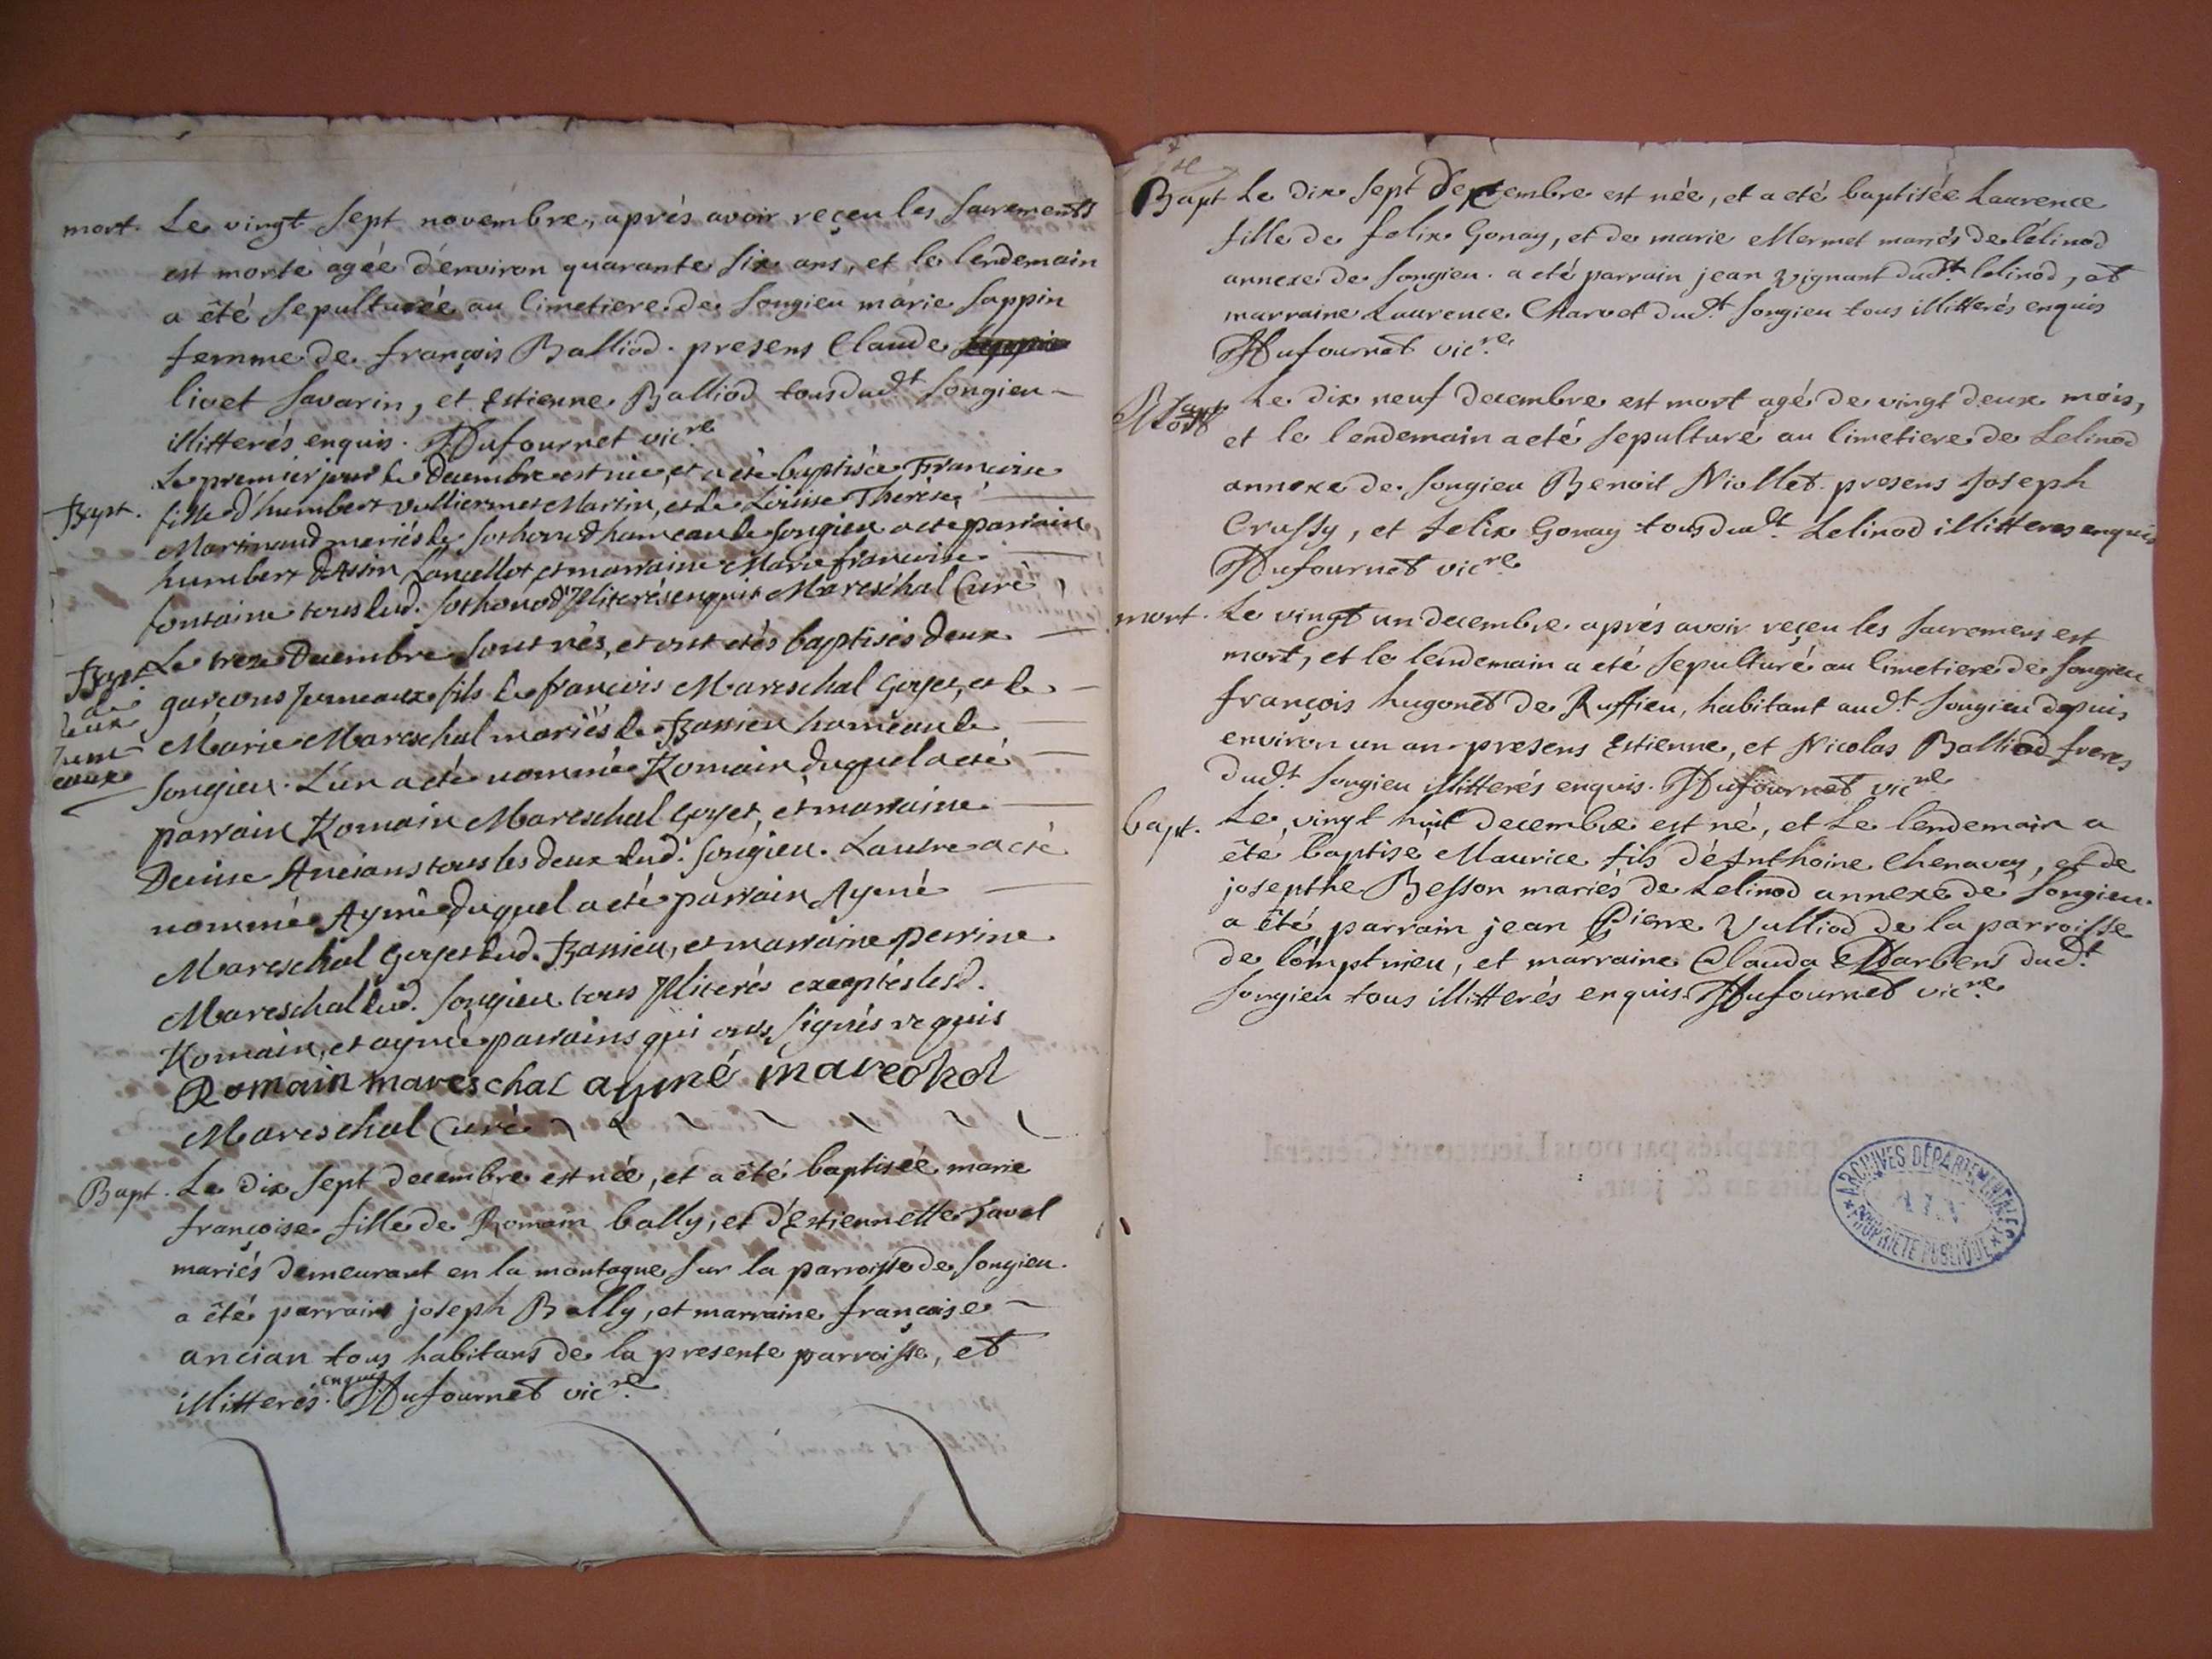 mort. Le vingt sept novembre, aprés avoir reçeu les sacrements
est morte agée d'environ quarante six ans, et le lendemain
a êté sepulturée au cimetiere de songieu marie sappin
femme de françois Balliod. presens Claude
livet savarin, et Estienne Balliod tous dud.t songieu
illitterés enquis. Dufournet vic.re
Le premier jour de Decembre est née, et a eté baptisée Francoise
Bapt. fille d'humbert vulliermet Martin, et de Loüise Therese
Martinand mariés de sothonod hameau de songieu a eté parrain
humbert dassin Lancellot et marraine Marie francoise
fontaine tous dud. sothonod Illiterés enquis Mareschal Curé
Bapt. Le treze Decembre sont nés, et ont etés baptisés deux
de garcons Jumeaux fils de francois Mareschal goyet, et de
deux Marie Mareschal mariés de Bassieu hameau de
Jum
eaux songieu. L'un a eté nommé Romain duquel a eté
parrain Romain Mareschal goyet, et marraine
Denise Ancians tous les deux dud. songieu. L'autre a eté
nommé Aymé duquel a eté parrain Aymé
Mareschal goyet dud. Bassieu, et marraine perrine
Mareschal dud. songieu tous Illiterés exceptés lesd.
Romain, et aymé parrains qui ont signés requis
Romain mareschal aymé mareschol
Mareschal Curé
Bapt. Le dix sept decembre est née, et a êté baptisée marie
françoise fille de Romain bally, et d'Estiennette Javel
mariés demeurant en la montagne sur la parroisse de songieu.
a êté parrain joseph Bally, et marraine françoise
ancian tous habitans de la presente parroisse, et
illitterés enquis. Dufournet vic.re
Bapt Le dix sept decembre est née, et a eté baptisée Laurence
fille de felix Gonay, et de marie Mermet mariés de lélinod
annexe de songieu. a eté parrain jean vignant dud.t lelinod, et
marraine Laurence Charvet dud.t songieu tous illitterés enquis
Dufournet vic.re
Mort Le dix neuf decembre est mort agé de vingt deux mois,
et le lendemain a eté sepulturé au cimetiere de Lelinod
annexe de songieu Benoit Niollet. presens Joseph
Crussy, et felix Gonay tous dud.t Lelinod illitteres enquis
Dufournet vic.re
mort. Le vingt un decembre aprés avoir reçeu les sacremens est
mort, et le lendemain a eté sepulturé au cimetiere de songieu
françois hugonet de Ruffieu, habitant aud.t songieu depuis
environ un an. presens Estienne, et Nicolas Balliod freres
dud.t songieu illitterés enquis. Dufournet vic.re
bapt. Le vingt huit decembre est né, et Le lendemain a
êté baptisé Maurice fils d'Anthoine Chenavey, et de
josepthe Besson mariés de Lelinod annexe de songieu.
a êté parrain jean Pierre Vulliod de la parroisse
de lomptnieu, et marraine Clauda Darbens dud.t
songieu tous illitterés enquis. Dufournet vic.re
ARCHIVES DÉPARTEMENTALES
AIN
PROPRIÉTÉ PUBLIQUE